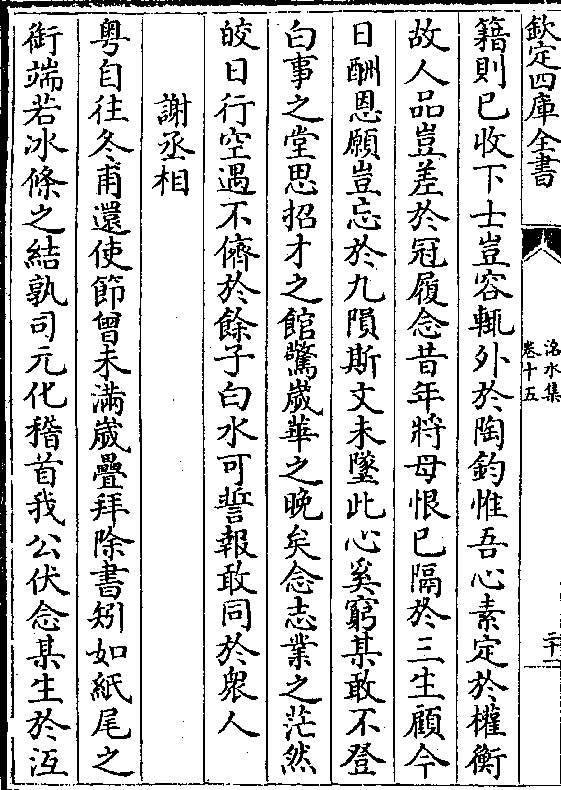 欽定四庫全書
洺水集
卷十五
二十一
籍則已收下士豈容輒外於陶鈞惟吾心素定於權衡
故人品豈差於冠履念昔年將母恨已隔於三生顧今
日酬恩願豈忘於九隕斯文未墜此心奚窮某敢不登
白事之堂思招才之館驚歲華之晚矣念志業之茫然
皎日行空遇不儕於餘子白水可誓報敢同於衆人
謝丞相
粤自往冬甫還使節曾未滿歲疊拜除書矧如紙尾之
銜端若冰條之結孰司元化稽首我公伏念某生於沍